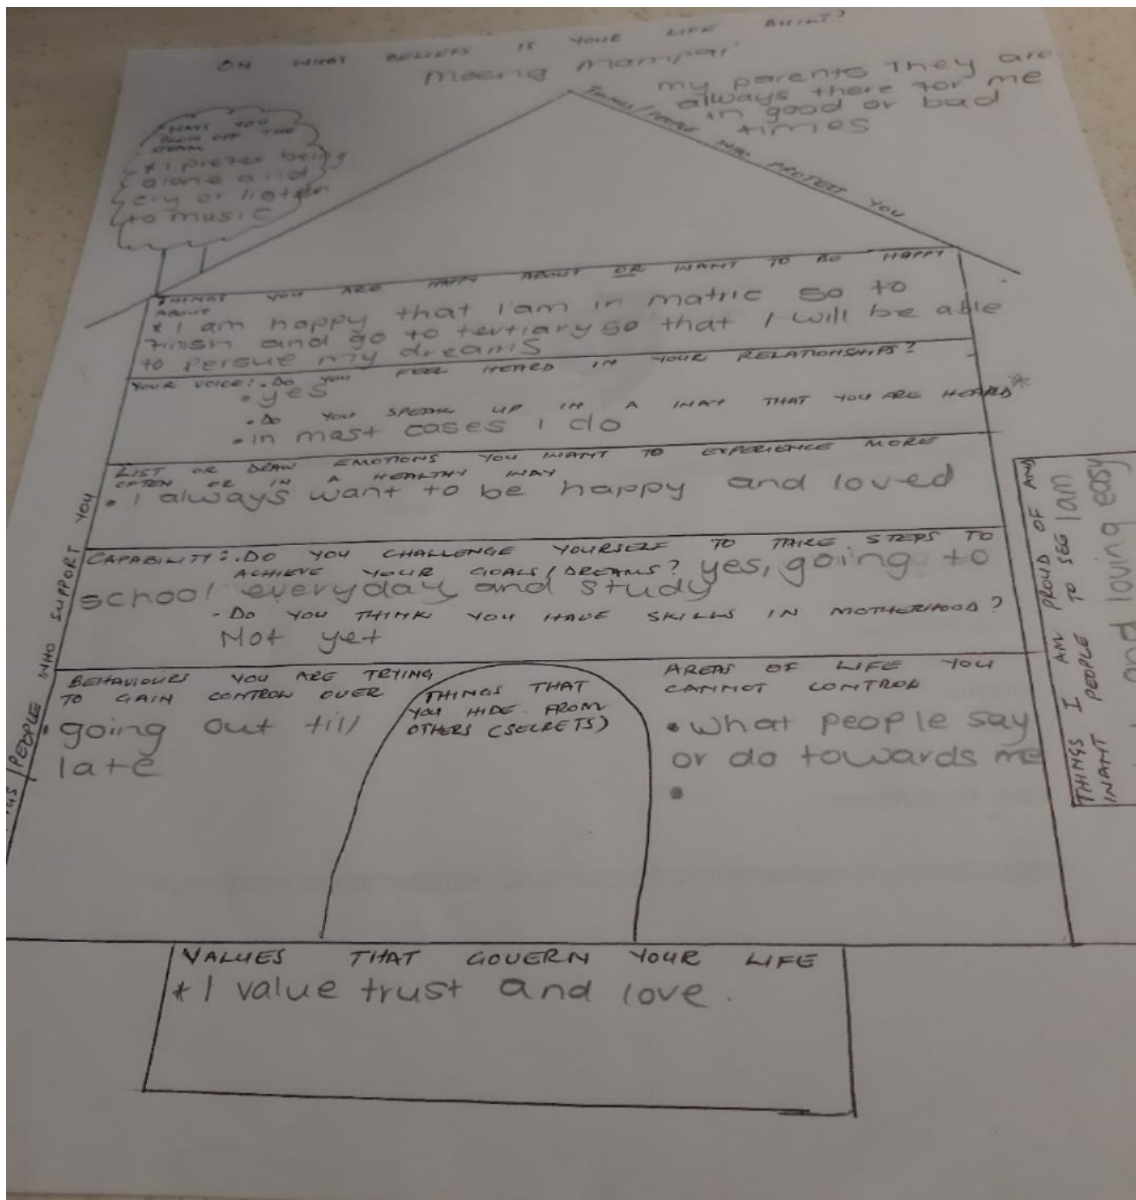 ON WHAT BELIEFS IS YOUR LIFE BUILT?
my parents They are
always there for me
in good or bad
times
THINGS/PEOPLE WHO PROTECT YOU
WAYS YOU
BLOW OFF THE
STEAM
* I prefer being
alone and
cry or listen
to music
THINGS YOU ARE HAPPY ABOUT OR WANT TO BE HAPPY
ABOUT
* I am happy that I am in matric so to
finish and go to tertiary so that I will be able
to persue my dreams
YOUR VOICE: • DO YOU FEEL HEARD IN YOUR RELATIONSHIPS?
• yes
• DO YOU SPEAK UP IN A WAY THAT YOU ARE HEARD *
• in most cases I do
LIST OR DRAW EMOTIONS YOU WANT TO EXPERIENCE MORE
OFTEN OR IN A HEALTHY WAY
• I always want to be happy and loved
CAPABILITY: • DO YOU CHALLENGE YOURSELF TO TAKE STEPS TO
ACHIEVE YOUR GOALS/DREAMS? yes, going to
school everyday and study
- DO YOU THINK YOU HAVE SKILLS IN MOTHERHOOD?
Not yet
PEOPLE WHO SUPPORT YOU
BEHAVIOURS YOU ARE TRYING
TO GAIN CONTROL OVER
• going out till
late
THINGS THAT
YOU HIDE FROM
OTHERS (SECRETS)
AREAS OF LIFE YOU
CANNOT CONTROL
• what people say
or do towards me
•
THINGS I AM PROUD OF AND
WANT PEOPLE TO SEE I am
and loving easy
VALUES THAT GOVERN YOUR LIFE
* I value trust and love.